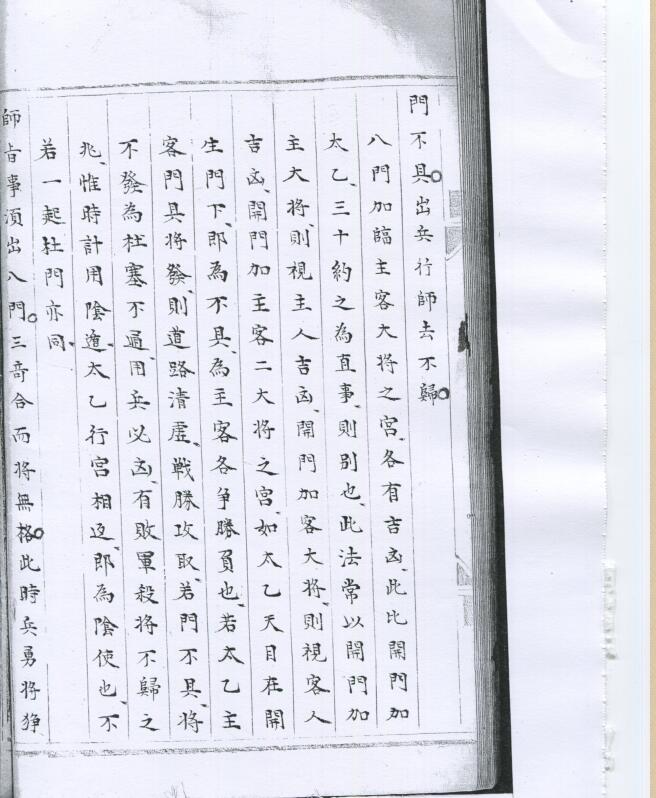 門不具。出兵行師去不歸。
八門加臨主客大將之宮、各有吉凶、此比開門加
太乙、三十約之為直事、則別也、此法常以開門加
主大將、則視主人吉凶、開門加客大將、則視客人
吉凶、開門加主客二大將之宮、如太乙天目在開
生門下、即為不具、為主客各爭勝負也、若太乙主
客門具將發、則道路清虛、戰勝攻取、若門不具、將
不發為杜塞不通、用兵必凶、有敗軍殺將不歸之
兆、惟時計用陰遁、太乙行宮相返、即為陰使也、不
若一起杜門亦同、
師旨事須出八門。三奇合而將無格。此時兵勇將猙